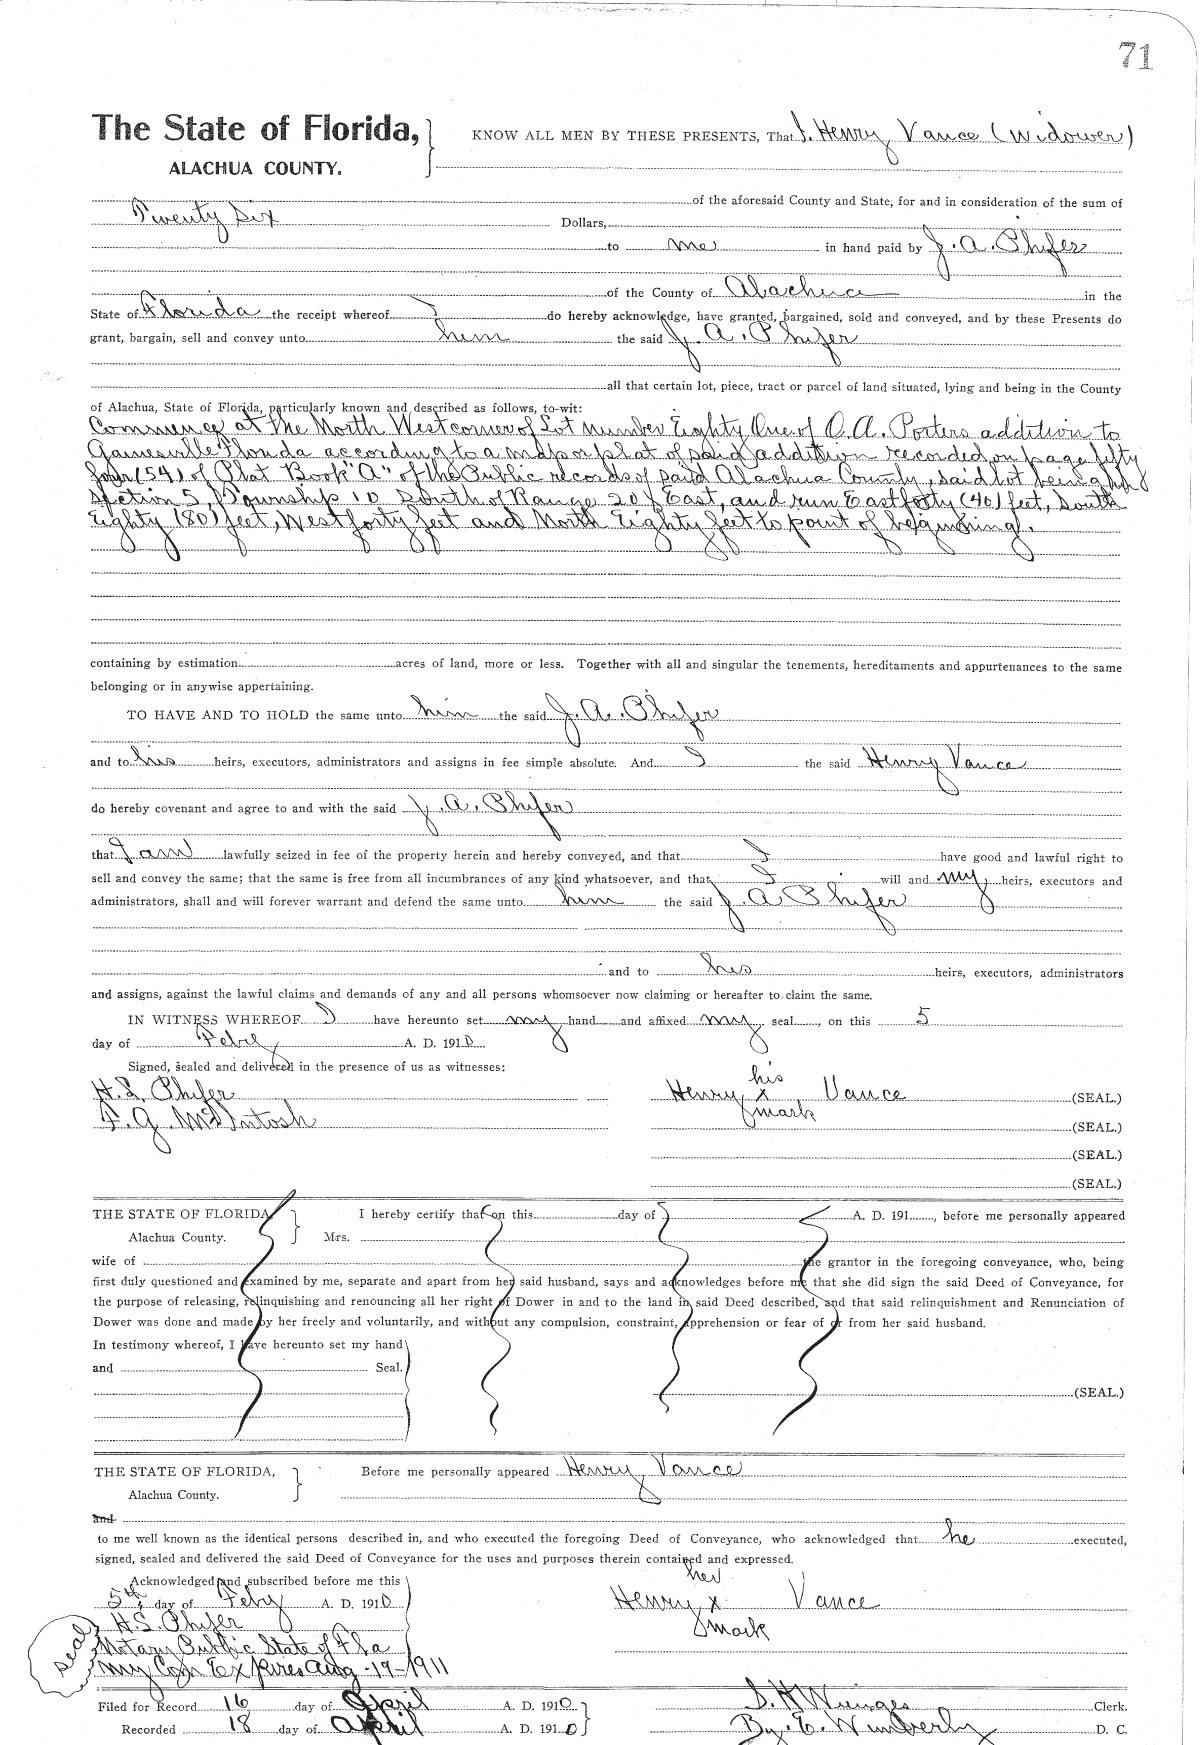 71
The State of Florida, KNOW ALL MEN BY THESE PRESENTS, That I. Henry Vance (Widower)
ALACHUA COUNTY.
of the aforesaid County and State, for and in consideration of the sum of
Twenty Six Dollars,
to me in hand paid by J. A. Phifer
of the County of Alachua in the
State of Florida the receipt whereof I do hereby acknowledge, have granted, bargained, sold and conveyed, and by these Presents do
grant, bargain, sell and convey unto him the said J. A. Phifer
all that certain lot, piece, tract or parcel of land situated, lying and being in the County
of Alachua, State of Florida, particularly known and described as follows, to-wit:
Commence at the North West corner of Lot number Eighty One of O. A. Porters addition to
Gainesville Florida according to a map or plat of said addition recorded on page fifty
four (54) of Plat Book "A" of the Public records of said Alachua County, said lot being in
Section 5, Township 10 South of Range 20 East, and run East forty (40) feet, South
Eighty (80) feet, West forty feet and North Eighty feet to point of beginning.
containing by estimation acres of land, more or less. Together with all and singular the tenements, hereditaments and appurtenances to the same
belonging or in anywise appertaining.
TO HAVE AND TO HOLD the same unto him the said J. A. Phifer
and to his heirs, executors, administrators and assigns in fee simple absolute. And I the said Henry Vance
do hereby covenant and agree to and with the said J. A. Phifer
that I am lawfully seized in fee of the property herein and hereby conveyed, and that I have good and lawful right to
sell and convey the same; that the same is free from all incumbrances of any kind whatsoever, and that I will and my heirs, executors and
administrators, shall and will forever warrant and defend the same unto him the said J. A Phifer
and to his heirs, executors, administrators
and assigns, against the lawful claims and demands of any and all persons whomsoever now claiming or hereafter to claim the same.
IN WITNESS WHEREOF I have hereunto set my hand and affixed my seal, on this 5
day of Feby A. D. 1910
Signed, sealed and delivered in the presence of us as witnesses:
his
H. S. Phifer Henry x Vance (SEAL.)
mark
F. G. McIntosh (SEAL.)
(SEAL.)
(SEAL.)
THE STATE OF FLORIDA I hereby certify that on this day of A. D. 191 , before me personally appeared
Alachua County. Mrs.
wife of the grantor in the foregoing conveyance, who, being
first duly questioned and examined by me, separate and apart from her said husband, says and acknowledges before me that she did sign the said Deed of Conveyance, for
the purpose of releasing, relinquishing and renouncing all her right of Dower in and to the land in said Deed described, and that said relinquishment and Renunciation of
Dower was done and made by her freely and voluntarily, and without any compulsion, constraint, apprehension or fear of or from her said husband.
In testimony whereof, I have hereunto set my hand
and Seal.
(SEAL.)
THE STATE OF FLORIDA, Before me personally appeared Henry Vance
Alachua County.
and
to me well known as the identical persons described in, and who executed the foregoing Deed of Conveyance, who acknowledged that he executed,
signed, sealed and delivered the said Deed of Conveyance for the uses and purposes therein contained and expressed.
Acknowledged and subscribed before me this
her
5th day of Feby A. D. 1910 Henry x Vance
mark
H. S. Phifer
Notary Public State of Fla
My Com Expires Aug. 19-1911
Seal
Filed for Record 16 day of April A. D. 1910 S. H. Wienges Clerk.
Recorded 18 day of April A. D. 1910 By. E. Wimberly D. C.